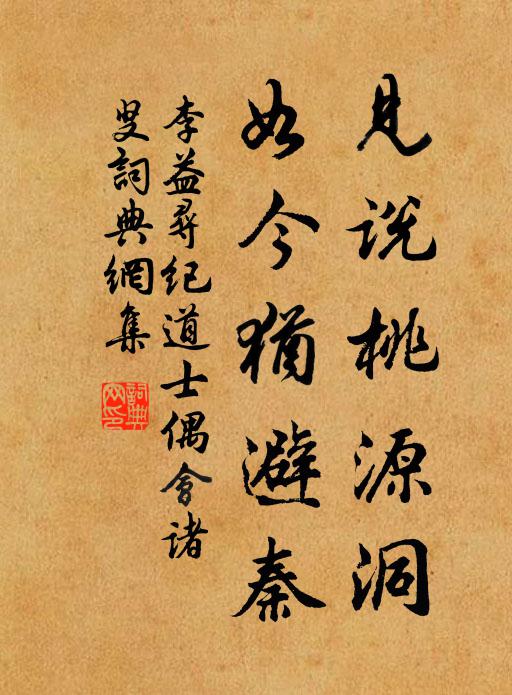 見説桃源洞
如今猶避秦
李益尋紀道士偶會諸
叟詞典網集
詞典
网印